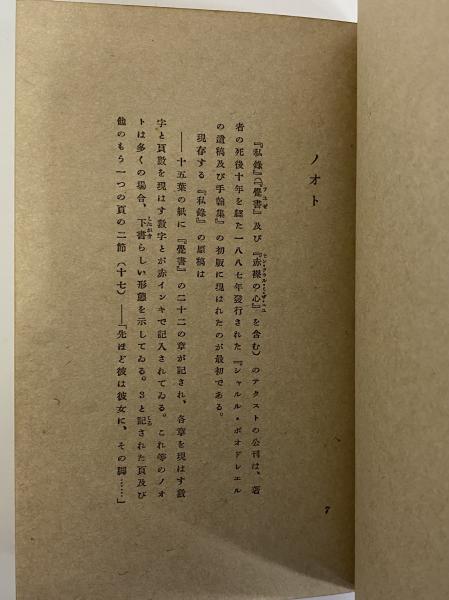 ノオト
『私錄』(『覺書』及び『赤裸の心』を含む)のテクストの公刊は、著
者の死後十年を經た一八八七年發行された『シャルル・ボオドレエル
の遺稿及び手翰集』の初版に現はれたのが最初である。
現存する『私錄』の原稿は
――十五葉の紙に『覺書』の二十二の章が記され、各章を現はす數
字と頁數を現はす數字とが赤インキで記入されてゐる。これ等のノオ
トは多くの場合、下書らしい形態を示してゐる。3と記された頁及び
他のもう一つの頁の二節(十七)――『先ほど彼は彼女に、その脚……』
7